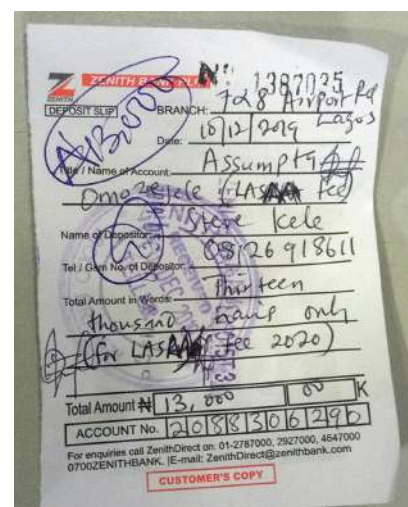 ZENITH BANK PLC
Nº 1387035
ZENITH
DEPOSIT SLIP BRANCH: 7&8 Airport Rd
Lagos
Date: 10/12/2019
₦13,000
Title / Name of Account: Assumpta
Omozejele (LAS fee)
Name of Depositor: Steve Kele
Tel / Gsm No. of Depositor: 08126918611
Total Amount in Words: thirteen
thousand naira only
(for LAS fee 2020)
Total Amount ₦ 13,000 00 K
ACCOUNT No. 2088306296
For enquiries call ZenithDirect on: 01-2787000, 2927000, 4647000
0700ZENITHBANK. |E-mail: ZenithDirect@zenithbank.com
CUSTOMER'S COPY